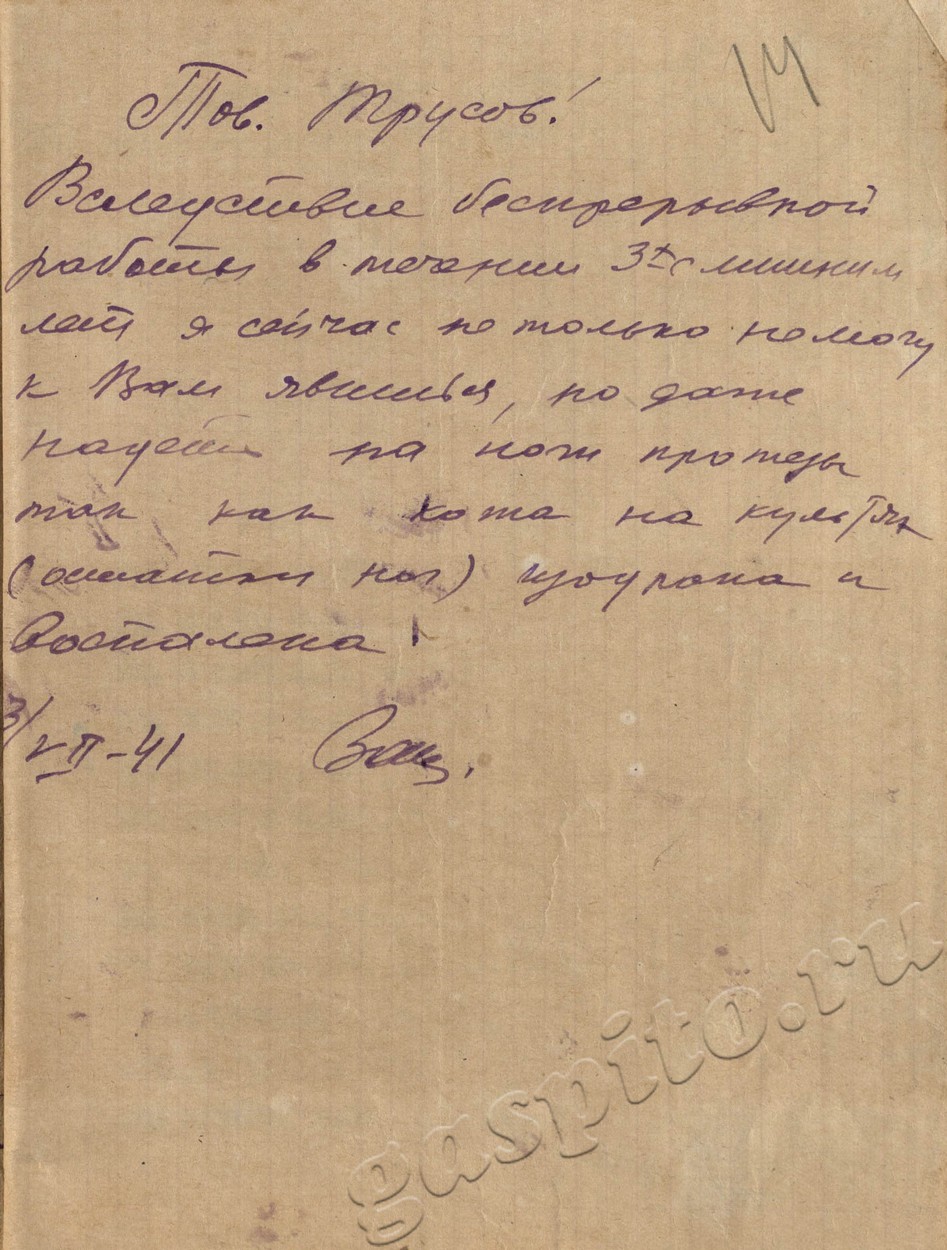 14
Тов. Трусов!
Вследствие беспрерывной
работы в течении 3х с лишним
лет я сейчас не только не могу
к Вам явиться, но даже
надеть на ноги протезы
так как кожа на культях
(остатки ног) изодрана и
воспалена!
3/VII-41
gaspito.ru